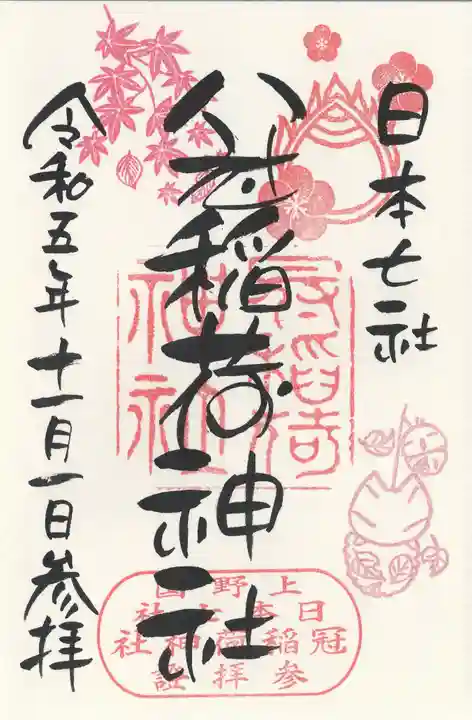 日本七社
冠稲荷神社
令和五年十一月一日参拝
冠稲荷
神社
上野国
日本七社
冠稲荷神社
参拝証